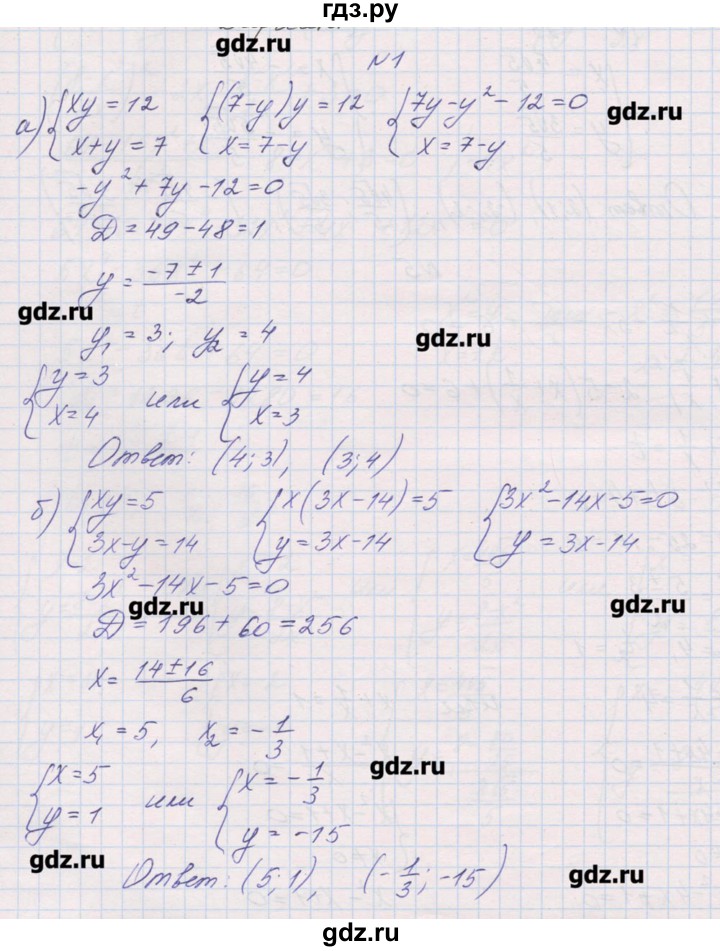 гдз.ру
gdz.ru
№1
а) { xy = 12 { (7-y)y = 12 { 7y - y² - 12 = 0
x+y = 7 x = 7-y x = 7-y
gdz.ru
-y² + 7y - 12 = 0
Д = 49 - 48 = 1
y = (-7 ± 1)/(-2)
gdz.ru
y₁ = 3; y₂ = 4
gdz.ru
{ y = 3 или { y = 4
x = 4 x = 3
Ответ: (4; 3), (3; 4)
б) { xy = 5 { x(3x-14) = 5 { 3x² - 14x - 5 = 0
3x - y = 14 y = 3x - 14 y = 3x - 14
3x² - 14x - 5 = 0
gdz.ru gdz.ru
Д = 196 + 60 = 256
x = (14 ± 16)/6
x₁ = 5, x₂ = -1/3
gdz.ru
{ x = 5 или { x = -1/3
y = 1 y = -15
gdz.ru
Ответ: (5; 1), (-1/3; -15)
gdz.ru
гдз.ру